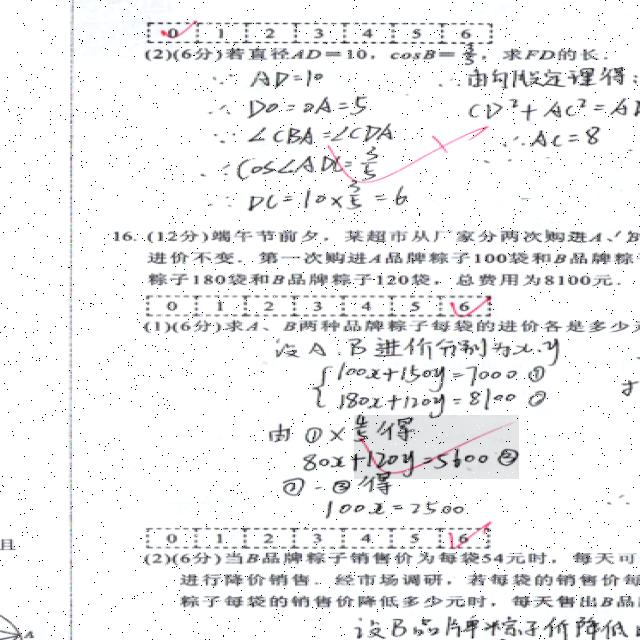 0 1 2 3 4 5 6
(2)(6分)若直径AD=10, cosB=3/5, 求FD的长.
∵ AD=10 ∴由勾股定理得:
∴ DO=OA=5 CD²+AC²=AD
∵ ∠CBA=∠CDA ∴AC=8
∴ cos∠ADC=3/5
∴ DC=10×3/5=6
16. (12分)端午节前夕, 某超市从厂家分两次购进A、
进价不变. 第一次购进A品牌粽子100袋和B品牌粽
粽子180袋和B品牌粽子120袋, 总费用为8100元.
0 1 2 3 4 5 6
(1)(6分)求A、B两种品牌粽子每袋的进价各是多少
设A.B进价分别为x.y
100x+150y=7000 ①
180x+120y=8100 ②
由①×4/5得
80x+120y=5600 ③
②-③得
100x=2500
0 1 2 3 4 5 6
(2)(6分)当B品牌粽子销售价为每袋54元时, 每天可
且
进行降价销售. 经市场调研, 若每袋的销售价每
粽子每袋的销售价降低多少元时, 每天售出B品
设B品牌粽子价降低